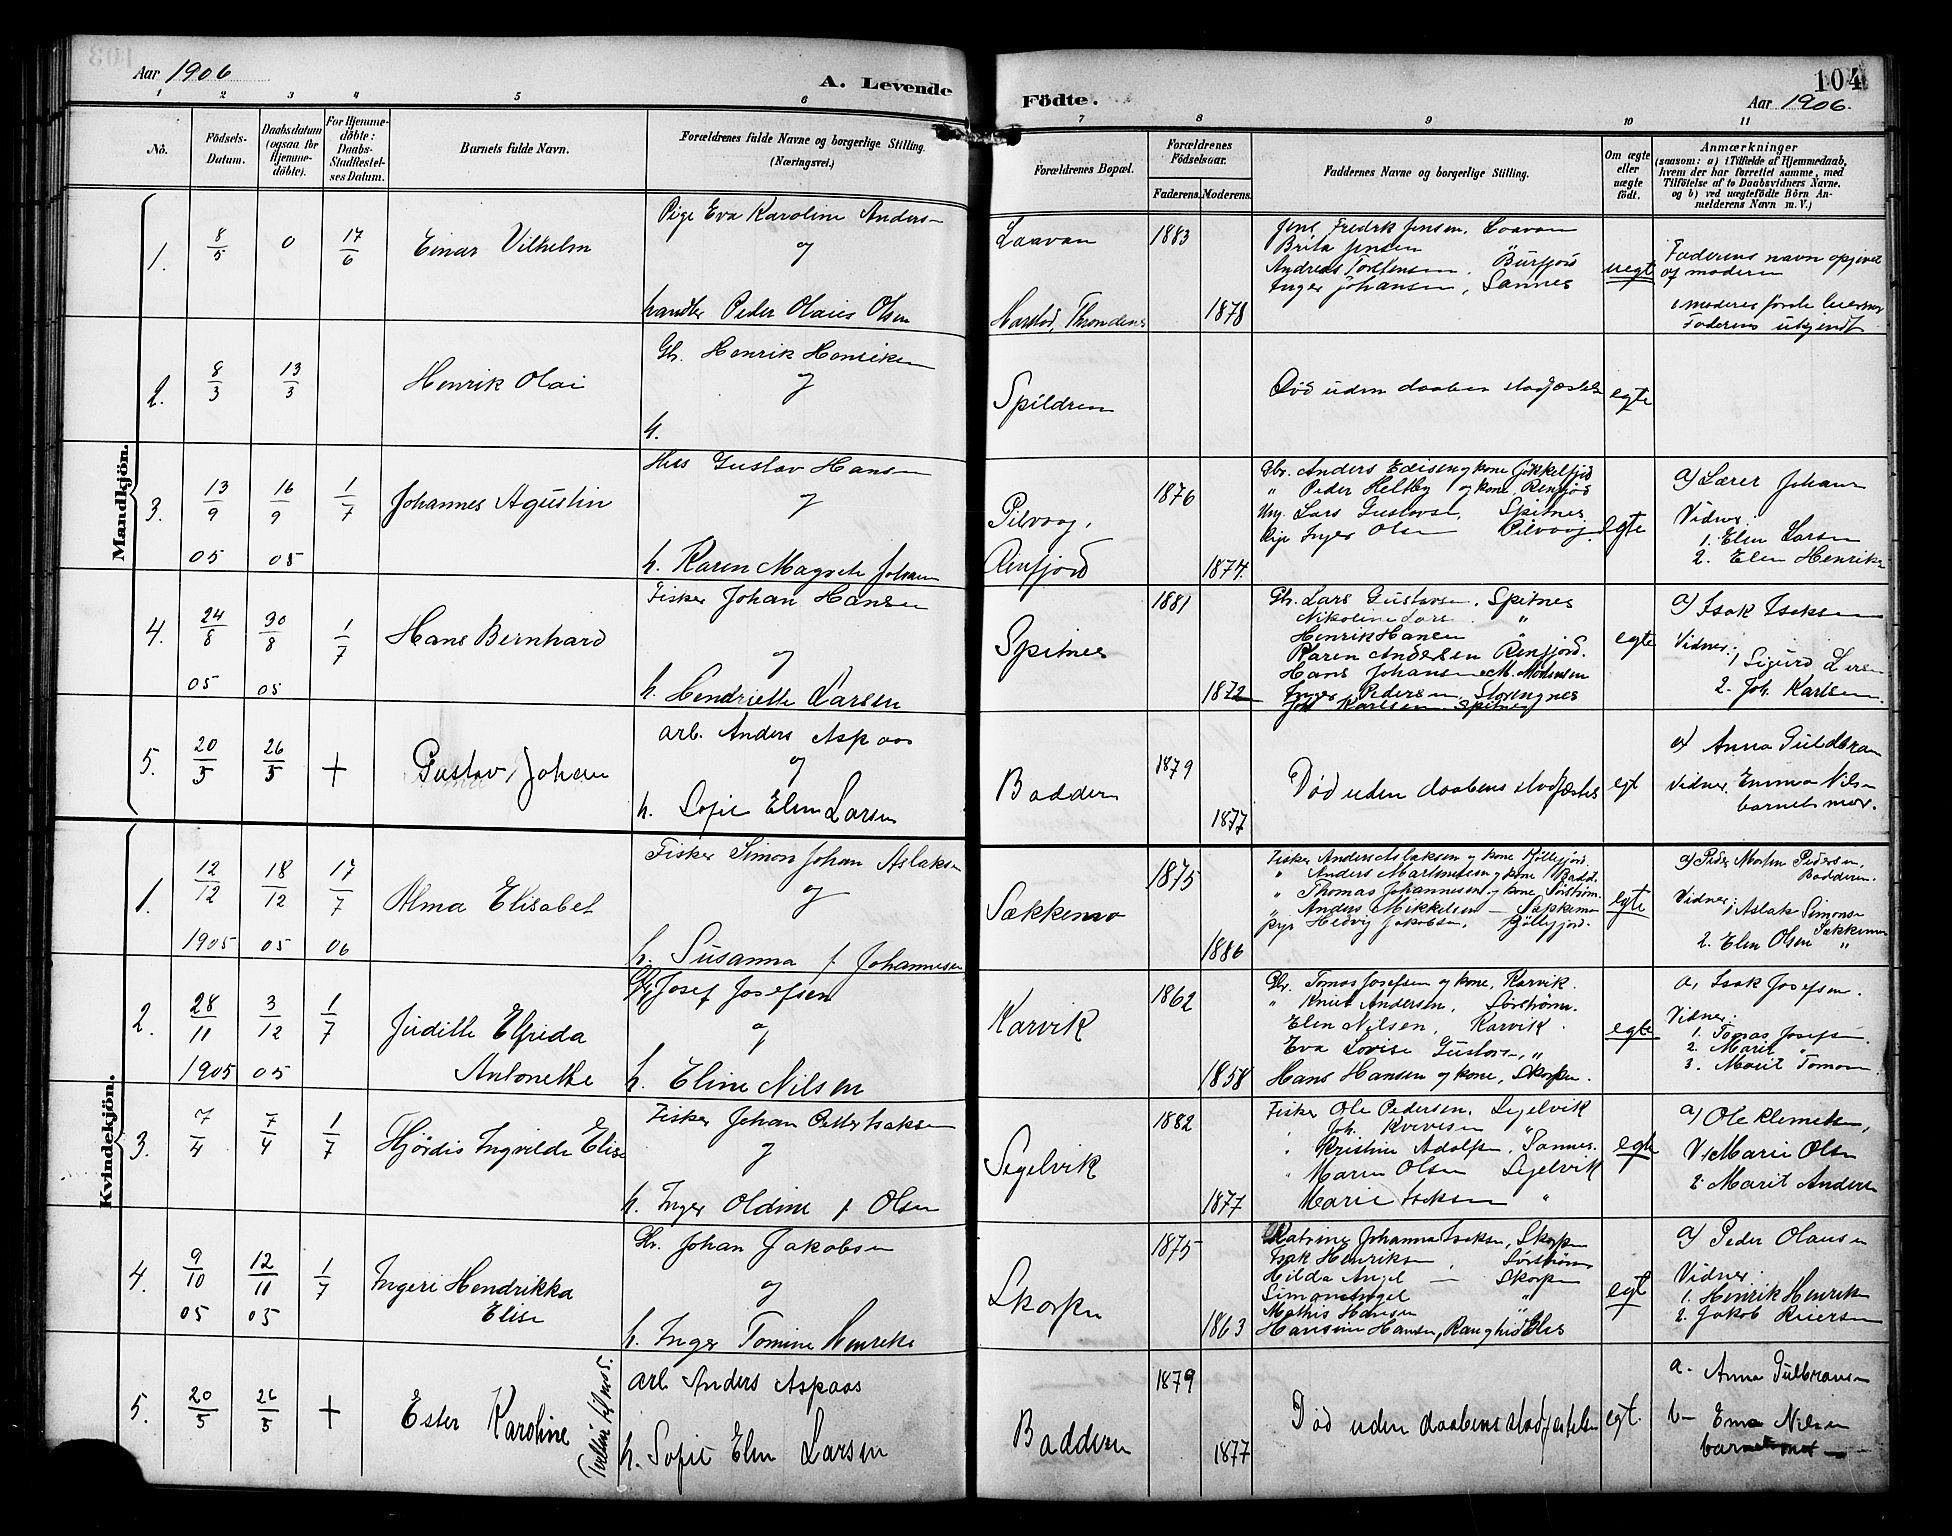 Aar 1906
A. Levende
Födte.
104
Aar 1906.
1 2 3 4 5 6 7 8 9 10 11
No.
Födsels-Datum.
Daabsdatum (ogsaa for Hjemmedöbte).
For Hjemmedöbte: Daabs-Stadfæstelses Datum.
Barnets fulde Navn.
Forældrenes fulde Navne og borgerlige Stilling.
(Næringsvei.)
Forældrenes Bopæl.
Forældrenes Födselsaar.
Faderens. Moderens.
Faddernes Navne og borgerlige Stilling.
Om ægte eller uægte födt.
Anmærkninger
(saasom: a) i Tilfælde af Hjemmedaab, hvem der har forrettet samme, med Tilföielse af to Daabsvidners Navne. og b) ved uægtefödte Börn Anmelderens Navn m. V.)
Mandkjön.
1.
8/5
0
17/6
Einar Vilhelm
Pige Eva Karoline Anders
og
handler Peder Olaus Olsen
Laavan
Harstad, Throndenes
1883
1878
Jens Fredrik Jensen, Laavan
Brita Jensen "
Andreas Torstensen, Burfjord
Inger Johansen, Sannes
uegte
Faderens navn opgivet
af moderen
Faderens ukjendt
2.
8/3
13/3
Henrik Olai
Gbr. Henrik Henriksen
og
h.
Spildren
Død uden daabens stadfæstelse
egte
3.
13/9
05
16/9
05
1/7
Johannes Agustin
Hus Gustav Hansen
og
h. Karen Magrete Johansen
Pilvaag,
Reinfjord
1876
1874.
Gbr. Anders Edisen og kone Jøkkelfjord
" Peder Heltby og kone, Reinfjord
Ung. Lars Gustavsen, Spitnes
Pige Inger Olsen Pilvaag
egte
a) Lærer Johan
Vidner:
1. Elen Larsen
2. Elen Henriks
4.
24/8
05
30/8
05
1/7
Hans Bernhard
Fisker Johan Hansen
og
h. Hendriette Larsen
Spitnes
1881
1872
Gbr. Lars Gustavsen, Spitnes
Nikoline Lars "
Henrik Hansen "
Karen Andersen Reinfjord.
Hans Johansen
Inger Pedersen, Storengnes
Joh Karlsen Spitnes
egte
a) Isak Isaksen
Vidner:
1 Sigurd Lars
2. Joh. Karlsen
5.
20/5
26/5
+
Gustav Johan
arb. Anders Aspaas
og
h. Sofie Elen Larsen
Badderen
1879
1877
Død uden daabens stadfæstelse
egt
a) Anna Guldbran
vidner, Emma Nils
barnets mor.
Kvindekjön.
1.
12/12
1905
18/12
05
17/7
06
Alma Elisabet
Fisker Simon Johan Aslaksen
og
h. Susanna f. Johannesen
Sækkemo
1875
1886
Fisker Anders Aslaksen og kone Kjøllefjord.
" Anders Martinsen og kone Badd.
" Thomas Johannesen og kone Sørstrøm.
" Anders Mikkelsen — Sækkemo
Pige Hedvig Jakobsen, Kjøllefjord.
egte
a) Peder Morten Pedersen,
Badderen.
Vidner:
1, Aslak Simonsen
Sækkemo
2. Elen Olsen "
2.
28/11
1905
3/12
05
1/7
Judithe Elfrida
Antonette
Gbr Josef Josefsen
og
h. Eline Nilsen
Karvik
1862
1858
Gbr. Tomas Josefsen og kone, Karvik.
" Knut Andersen, Sørstrøm.
Elen Nilsen, Karvik.
Eva Lovise Gustavs, "
Hans Hansen og kone, Skorpen.
egte
a, Isak Josefsen.
Vidner:
1. Tomas Josefs
2. Marit "
3. Marit Tomas
3.
7/4
7/4
1/7
Hjørdis Ingvilde Elise
Fisker Johan Petter Isaksen
og
h. Inger Oldine f. Olsen
Segelvik
1882
1877
Fisker Ole Pedersen, Segelvik
" Joh. Kvivesen "
" Kristine Adolfsen, Sannes.
" Maren Olsen Segelvik
Marie Isaksen "
egte
a) Ole Klemetsen,
V. 1 Marie Olsen
2. Marit Anders
4.
9/10
05
12/11
05
1/7
Ingeri Hendrikka
Elise
Gbr. Johan Jakobsen
og
h. Inger Tomine Henriks
Skorpen
1875
1863
Katrine Johanna Isaksen, Skorpen
Isak Henriksen, Sørstrøm
Hilda Angel — Skorpen
Simon Angel "
Mathis Hansen "
Hansine Hansen, Ranghild Ols
egt
a) Peder Olausen
Vidner:
1. Henrik Henrik
2. Jakob Reiersen
5.
20/5
26/5
+
Ester Karoline
arb. Anders Aspaas
h. Sofie Elen Larsen
Badderen
1879
1877
Død uden daabens stadfæstelse
egt.
a. Anna Gulbransen
b- Ema Nilsen
barnets mor —